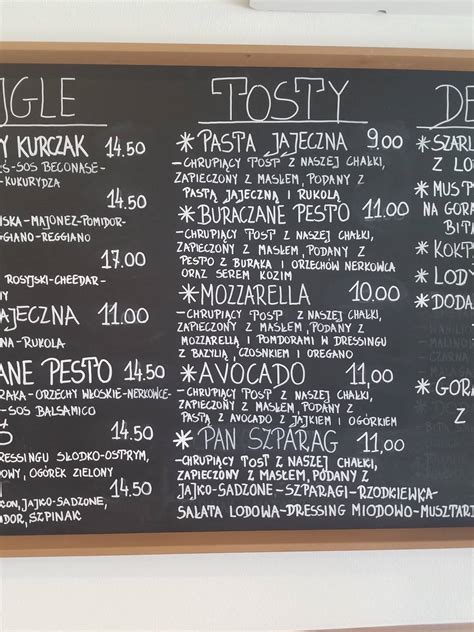 JGLE
Y KURCZAK 14.50
ES-SOS BECONASE-
-KUKURYDZA
14.50
ŃSKA-MAJONEZ-POMIDOR-
GGIANO-REGGIANO
17.00
ROSYJSKI-CHEEDAR-
AJECZNA 11.00
NA-RUKOLA
ANE PESTO 14.50
RAKA-ORZECHY WŁOSKIE-NERKOWCE-
-SOS BALSAMICO
14.50
RESSINGU SŁODKO-OSTRYM,
DOWY, OGÓREK ZIELONY
14.50
CON, JAJKO-SADZONE,
DOR, SZPINAK
TOSTY
*PASTA JAJECZNA 9.00
-CHRUPIĄCY TOST Z NASZEJ CHAŁKI,
ZAPIECZONY Z MASŁEM, PODANY Z
PASTĄ JAJECZNĄ I RUKOLĄ
*BURACZANE PESTO 11.00
-CHRUPIĄCY TOST Z NASZEJ CHAŁKI,
ZAPIECZONY Z MASŁEM, PODANY
PESTO Z BURAKA I ORZECHÓW NERKOWCA
ORAZ SEREM KOZIM
*MOZZARELLA 10.00
-CHRUPIĄCY TOST Z NASZEJ CHAŁKI,
ZAPIECZONY Z MASŁEM, PODANY Z
MOZZARELLĄ I POMIDORAMI W DRESSINGU
Z BAZYLII, CZOSNKIEM I OREGANO
*AVOCADO 11,00
-CHRUPIĄCY TOST Z NASZEJ CHAŁKI,
ZAPIECZONY Z MASŁEM, PODANY Z
PASTĄ Z AVOCADO Z JAJKIEM I OGÓRKIEM
* PAN SZPARAG 11,00
-CHRUPIĄCY TOST Z NASZEJ CHAŁKI,
ZAPIECZONY Z MASŁEM, PODANY Z
JAJKO-SADZONE-SZPARAGI-RZODKIEWKA-
SAŁATA LODOWA-DRESSING MIODOWO-MUSZTAR
DE
*SZARL
Z LO
*MUS P
NA GO
BITA
*KOKT
*LOD
*DODA
*GORA